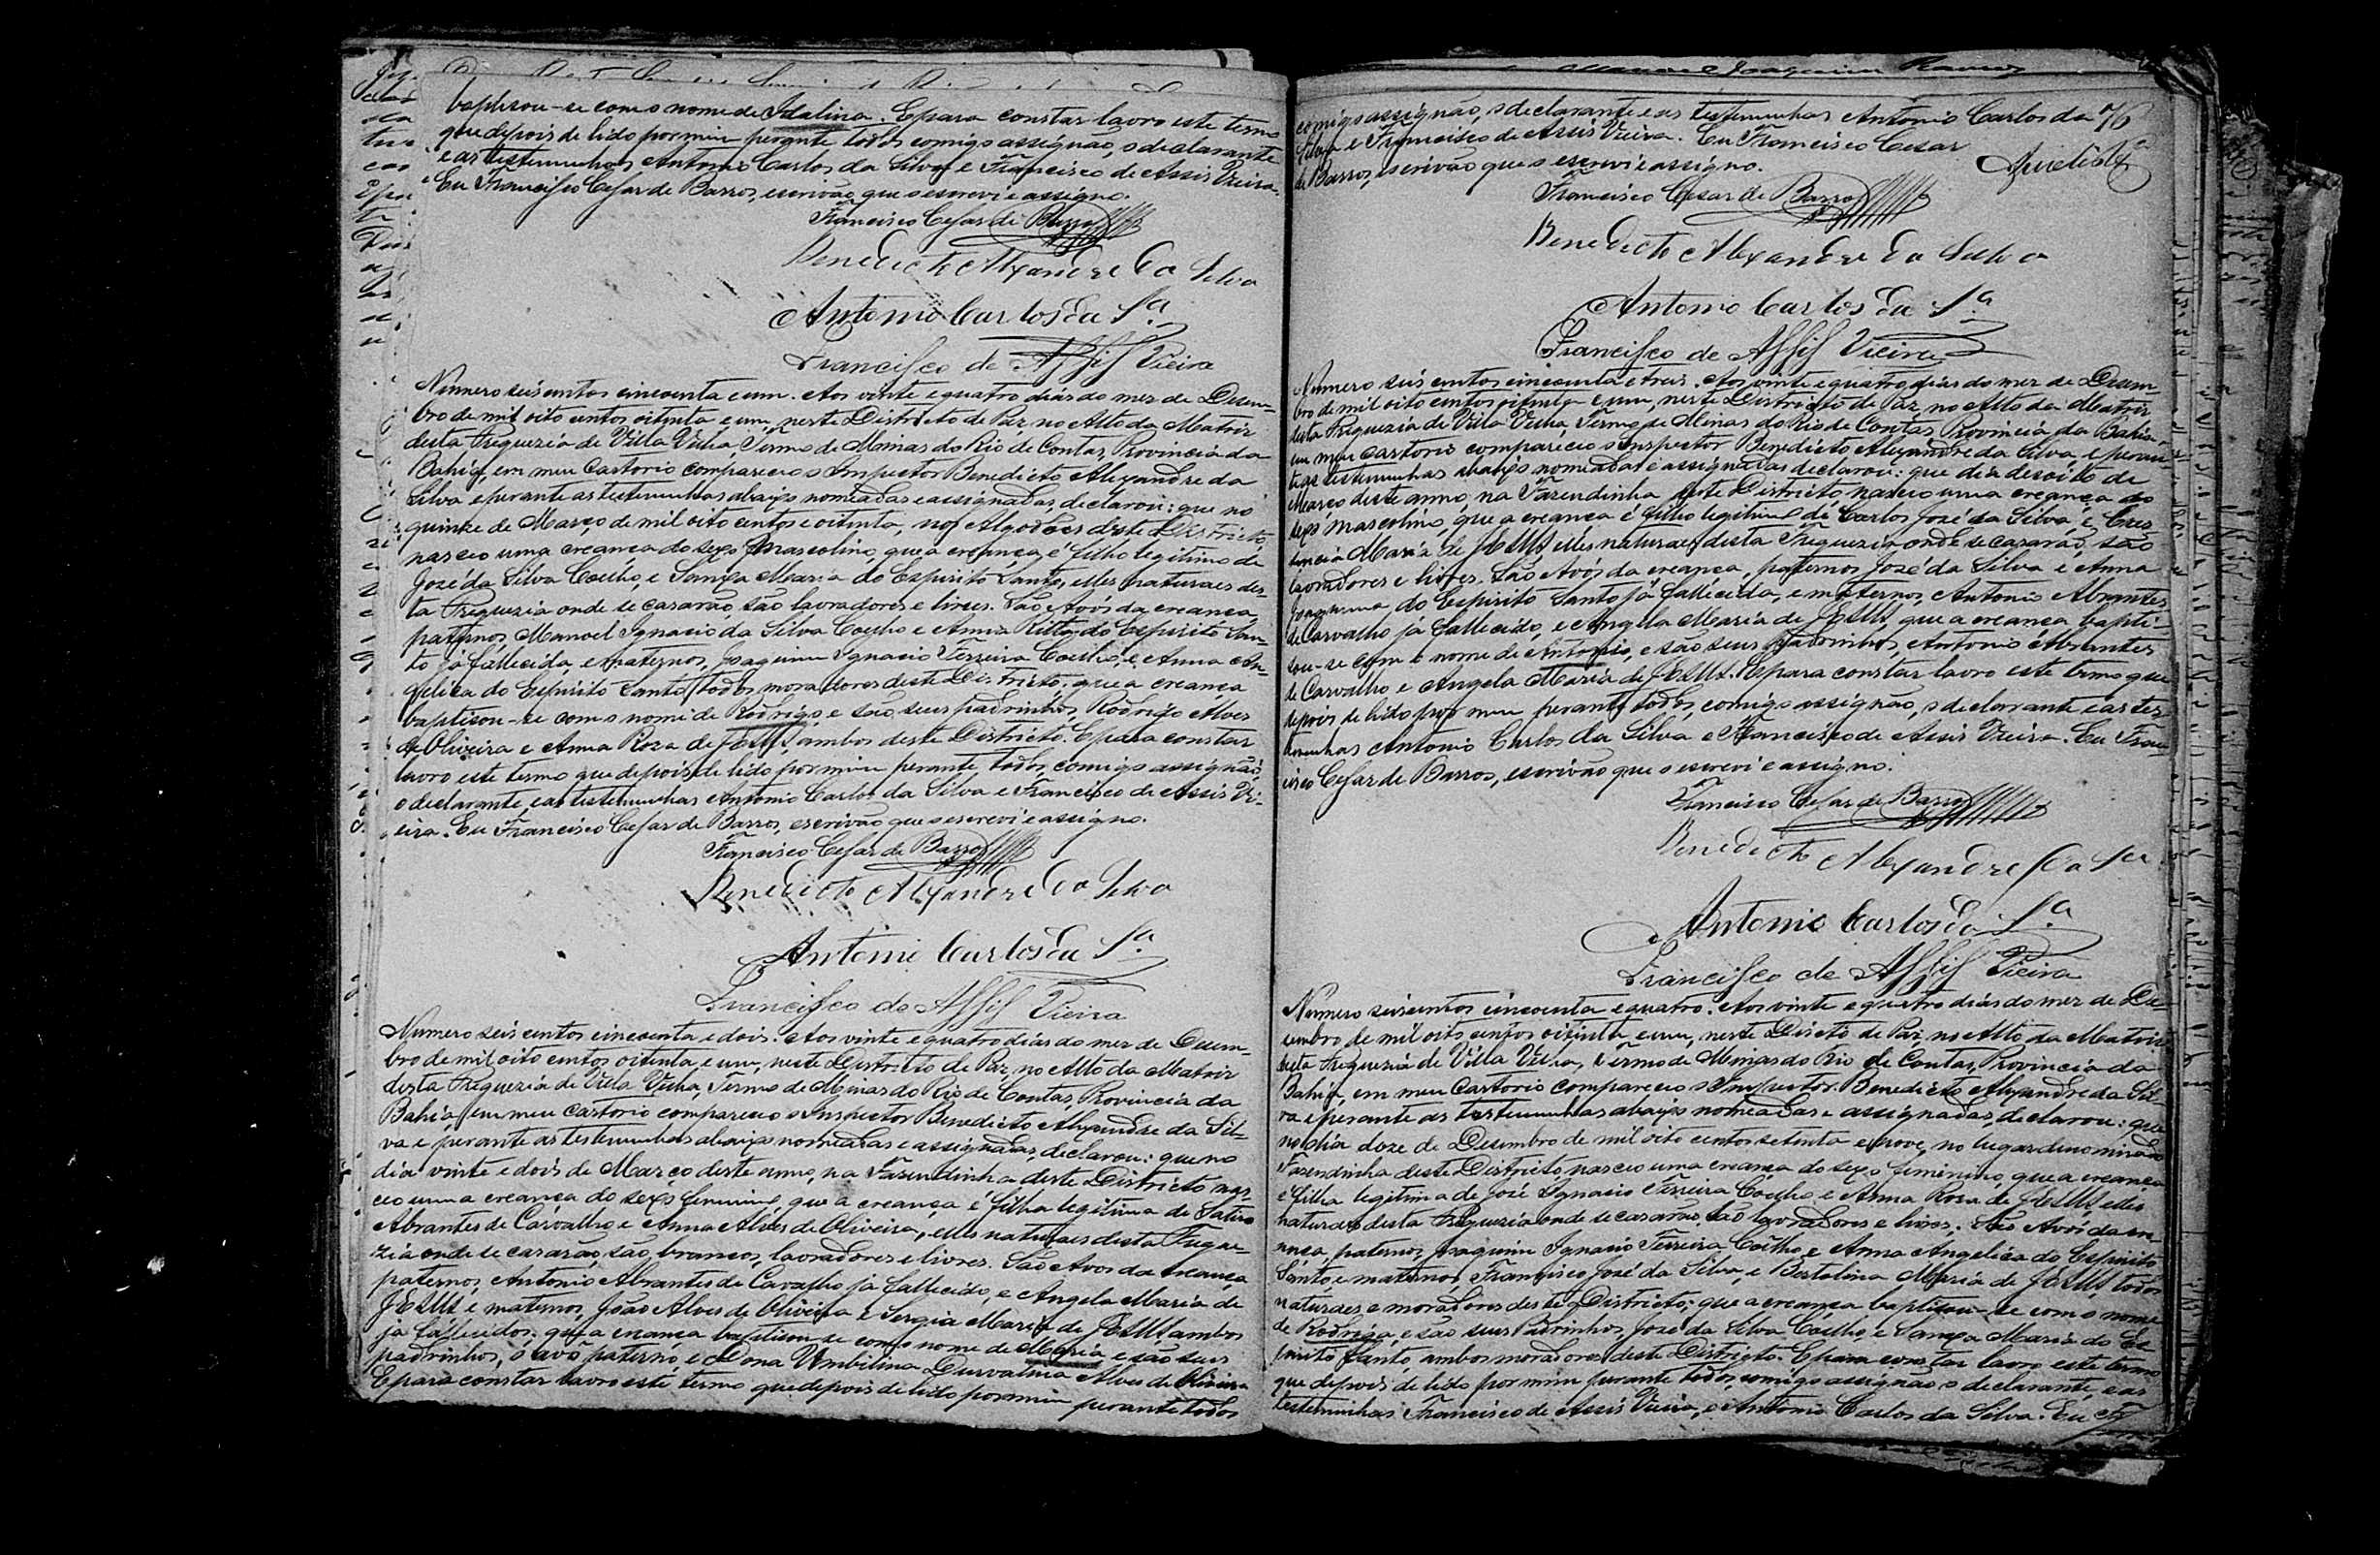 baptisou-se com o nome de Idalina. E para constar lavro este termo
que depois de lido por mim perante todos comigo assignão, o declarante
e as testemunhas Antonio Carlos da Silva e Francisco de Assis Vieira.
Eu Francisco Cesar de Barros, escrivão que o escrevi e assigno.
Francisco Cesar de Barros
Benedicto Alexandre da Silva
Antonio Carlos da Sª
Francisco de Assis Vieira
Numero seis centos cincoenta e um. Aos vinte e quatro dias do mez de Desem-
bro de mil oito centos oitenta e um, neste Districto de Paz, no Alto da Matriz
desta Freguezia de Villa Velha, Termo de Minas do Rio de Contas, Provincia da
Bahia, em meu Cartorio compareceo o Inspector Benedicto Alexandre da
Silva e perante as testemunhas abaixo nomeadas e assignadas, declarou: que no
quinze de Março de mil oito centos e oitenta, nos Algodões deste Districto,
nasceo uma creança do sexo masculino, que a creança é filho legitimo de
José da Silva Coelho, e Sança Maria do Espirito Santo, elles naturaes des-
ta Freguezia onde se casarão, são lavradores e livres. São Avós da creança,
paternos, Manoel Ignacio da Silva Coelho e Anna Ritta do Espirito San-
to já fallecida, e maternos, Joaquim Ignacio Ferreira Coelho, e Anna An-
gelica do Espirito Santo, todos moradores deste Districto; que a creança
baptisou-se com o nome de Rodrigo, e são seus padrinhos, Rodrigo Alves
de Oliveira e Anna Roza de JESUS, ambos deste Districto. E para constar
lavro este termo que depois de lido por mim perante todos, comigo assignão,
o declarante, e as testemunhas Antonio Carlos da Silva e Francisco de Assis Vi-
eira. Eu Francisco Cesar de Barros, escrivão que o escrevi e assigno.
Francisco Cesar de Barros
Benedicto Alexandre da Silva
Antonio Carlos da Sª
Francisco de Assis Vieira
Numero seis centos cincoenta e dois. Aos vinte e quatro dias do mez de Desem-
bro de mil oito centos oitenta e um, neste Districto de Paz, no Alto da Matriz
desta Freguezia de Villa Velha, Termo de Minas do Rio de Contas, Provincia da
Bahia, em meu Cartorio compareceo o Inspector Benedicto Alexandre da Sil-
va e perante as testemunhas abaixo nomeadas e assignadas, declarou: que no
dia vinte e dois de Março deste anno, na Fasendinha deste Districto nas-
ceo uma creança do sexo feminino, que a creança é filha legitima de Satiro
Abrantes de Carvalho e Anna Alves de Oliveira, elles naturaes desta Fregue-
zia onde se casarão, são brancos, lavradores e livres. São Avós da creança
paternos, Antonio Abrantes de Carvalho já fallecido, e Angela Maria de
JESUS e maternos, João Alves de Oliveira e Sergia Maria de JESUS ambos
já fallecidos. que a creança baptisou-se com o nome de Maria e são seus
padrinhos, o avô paterno, e Dona Umbilina Durvalina Alves de Oliveira
E para constar lavro este termo que depois de lido por mim perante todos
comigo assignão, o declarante e as testemunhas Antonio Carlos da 76
Silva e Francisco de Assis Vieira. Eu Francisco Cesar
de Barros, escrivão que o escrevi e assigno.
Francisco Cesar de Barros
Benedicto Alexandre da Silva
Antonio Carlos da Sª
Francisco de Assis Vieira
Numero seis centos cincoenta e treis. Aos vinte e quatro dias do mez de Desem-
bro de mil oito centos oitenta e um, neste Districto de Paz, no Alto da Matriz
desta Freguezia de Villa Velha, Termo de Minas do Rio de Contas, Provincia da Bahia
em meu Cartorio compareceo o Inspector Benedicto Alexandre da Silva, e peran-
te as testemunhas abaixo nomeadas e assignadas declarou: que dia desoito de
Março deste anno, na Fazendinha deste Districto, nasceo uma creança do
sexo mascolino, que a creança é filho legitimo de Carlos José da Silva, e Cres-
cencia Maria de JESUS elles naturaes desta Freguezia onde se casarão, são
lavradores e livres. São Avós da creança, paternos José da Silva e Anna
Joaquina do Espirito Santo já fallecida, e maternos, Antonio Abrantes
de Carvalho já fallecido, e Angela Maria de JESUS, que a creança bapti-
sou-se com o nome de Antonio, e são seus padrinhos, Antonio Abrantes
de Carvalho e Angela Maria de JESUS. E para constar lavro este termo que
depois de lido por mim perante todos, comigo assignão, o declarante e as tes-
temunhas Antonio Carlos da Silva e Francisco de Assis Vieira. Eu Fran-
cisco Cesar de Barros, escrivão que o escrevi e assigno.
Francisco Cesar de Barros
Benedicto Alexandre da Sª
Antonio Carlos da Sª
Francisco de Assis Vieira
Numero seis centos cincoenta e quatro. Aos vinte e quatro dias do mez de De-
sembro de mil oito centos oitenta e um, neste Discto de Paz, no Alto da Matriz
desta Freguezia de Villa Velha, Termo de Minas do Rio de Contas, Provincia da
Bahia, em meu Cartorio compareceo o Inspector Benedicto Alexandre da Sil-
va e perante as testemunhas abaixo nomeadas e assignadas, declarou: que
no dia doze de Desembro de mil oito centos setenta e nove, no lugar denominado
Fazendinha deste Districto nasceo uma creança do sexo feminino, que a creança
é filha legitima de José Ignacio Ferreira Coelho, e Anna Rosa de JESUS, elles
naturaes desta Freguezia onde se casarão, são lavradores e livres; São Avós da cre-
ança, paternos, Joaquim Ignacio Ferreira Coelho, e Anna Angelica do Espirito
Santo e maternos, Francisco José da Silva, e Bertolina Maria de JESUS, todos
naturaes e moradores deste Districto; que a creança baptisou-se com o nome
de Rodriga, e são seus Padrinhos, José da Silva Coelho, e Sança Maria do Es-
pirito Santo, ambos moradores deste Districto. E para constar lavro este termo
que depois de lido por mim perante todos, comigo assignão o declarante, e as
testemunhas Francisco de Assis Vieira, e Antonio Carlos da Silva. Eu Fr